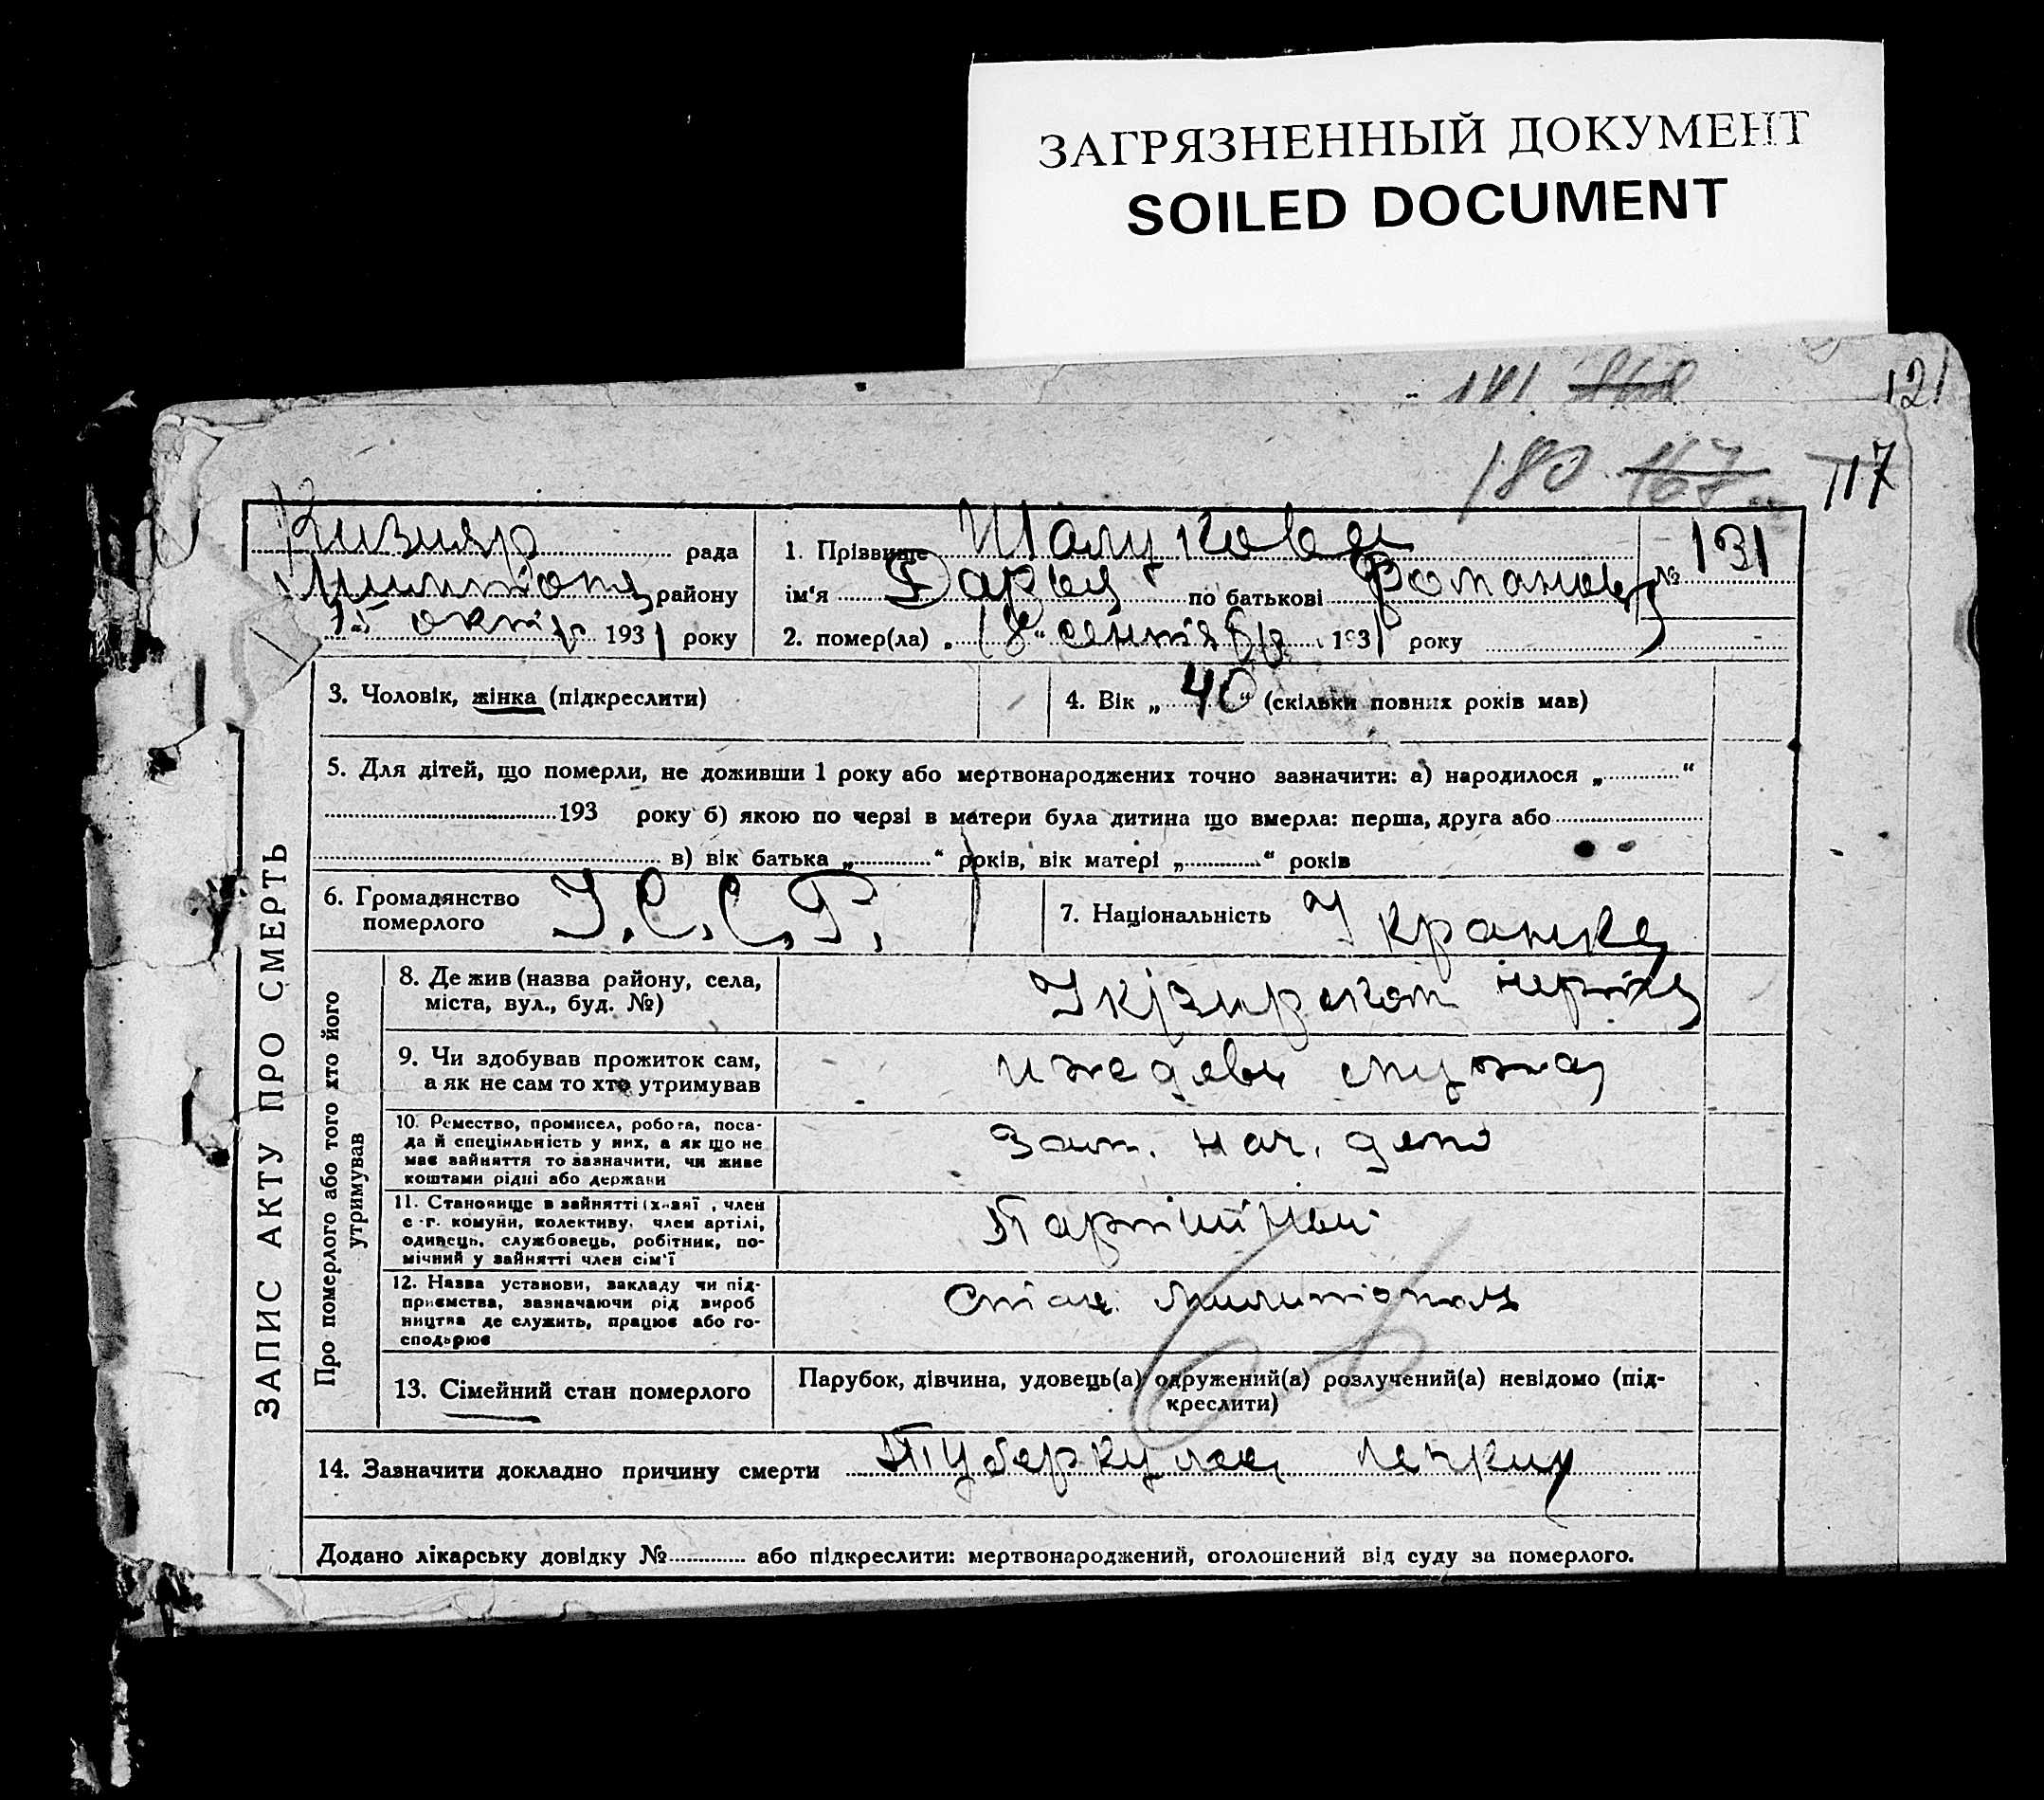 ЗАГРЯЗНЕННЫЙ ДОКУМЕНТ
SOILED DOCUMENT
181 868 121
180 167 117
Кизияр рада
району
15 октяб 1931 року
1. Прізвище Шалукова
ім'я Дарья по батькові Романов
№ 131
2. помер(ла) „18“ сентября 1931 року
3. Чоловік, жінка (підкреслити)
4. Вік „40“ (скільки повних років мав)
5. Для дітей, що померли, не доживши 1 року або мертвонароджених точно зазначити: а) народилося „ “
193 року б) якою по черзі в матери була дитина що вмерла: перша, друга або
в) вік батька „ “ років, вік матері „ “ років
6. Громадянство
померлого
У.С.С.Р.
7. Національність
ЗАПИС АКТУ ПРО СМЕРТЬ
Про померлого або того хто його
утримував
8. Де жив (назва району, села,
міста, вул., буд. №)
9. Чи здобував прожиток сам,
а як не сам то хто утримував
мужа
10. Ремество, промисел, робота, поса-
да й спеціяльність у них, а як що не
має зайняття то зазначити, чи живе
коштами рідні або держави
Зам. нач. депо
11. Становище в зайнятті (хазяї, член
с.-г. комуни, колективу, член артілі,
одинець, службовець, робітник, по-
мічний у зайнятті член сім'ї
Партійный
12. Назва установи, закладу чи під-
приємства, зазначаючи рід вироб
ництва де служить, працює або го-
сподарює
Стан. Милитополь
13. Сімейний стан померлого
Парубок, дівчина, удовець(а) одружений(а) розлучений(а) невідомо (під-
креслити)
14. Зазначити докладно причину смерти Туберкулез легких
Додано лікарську довідку № або підкреслити: мертвонароджений, оголошений від суду за померлого.